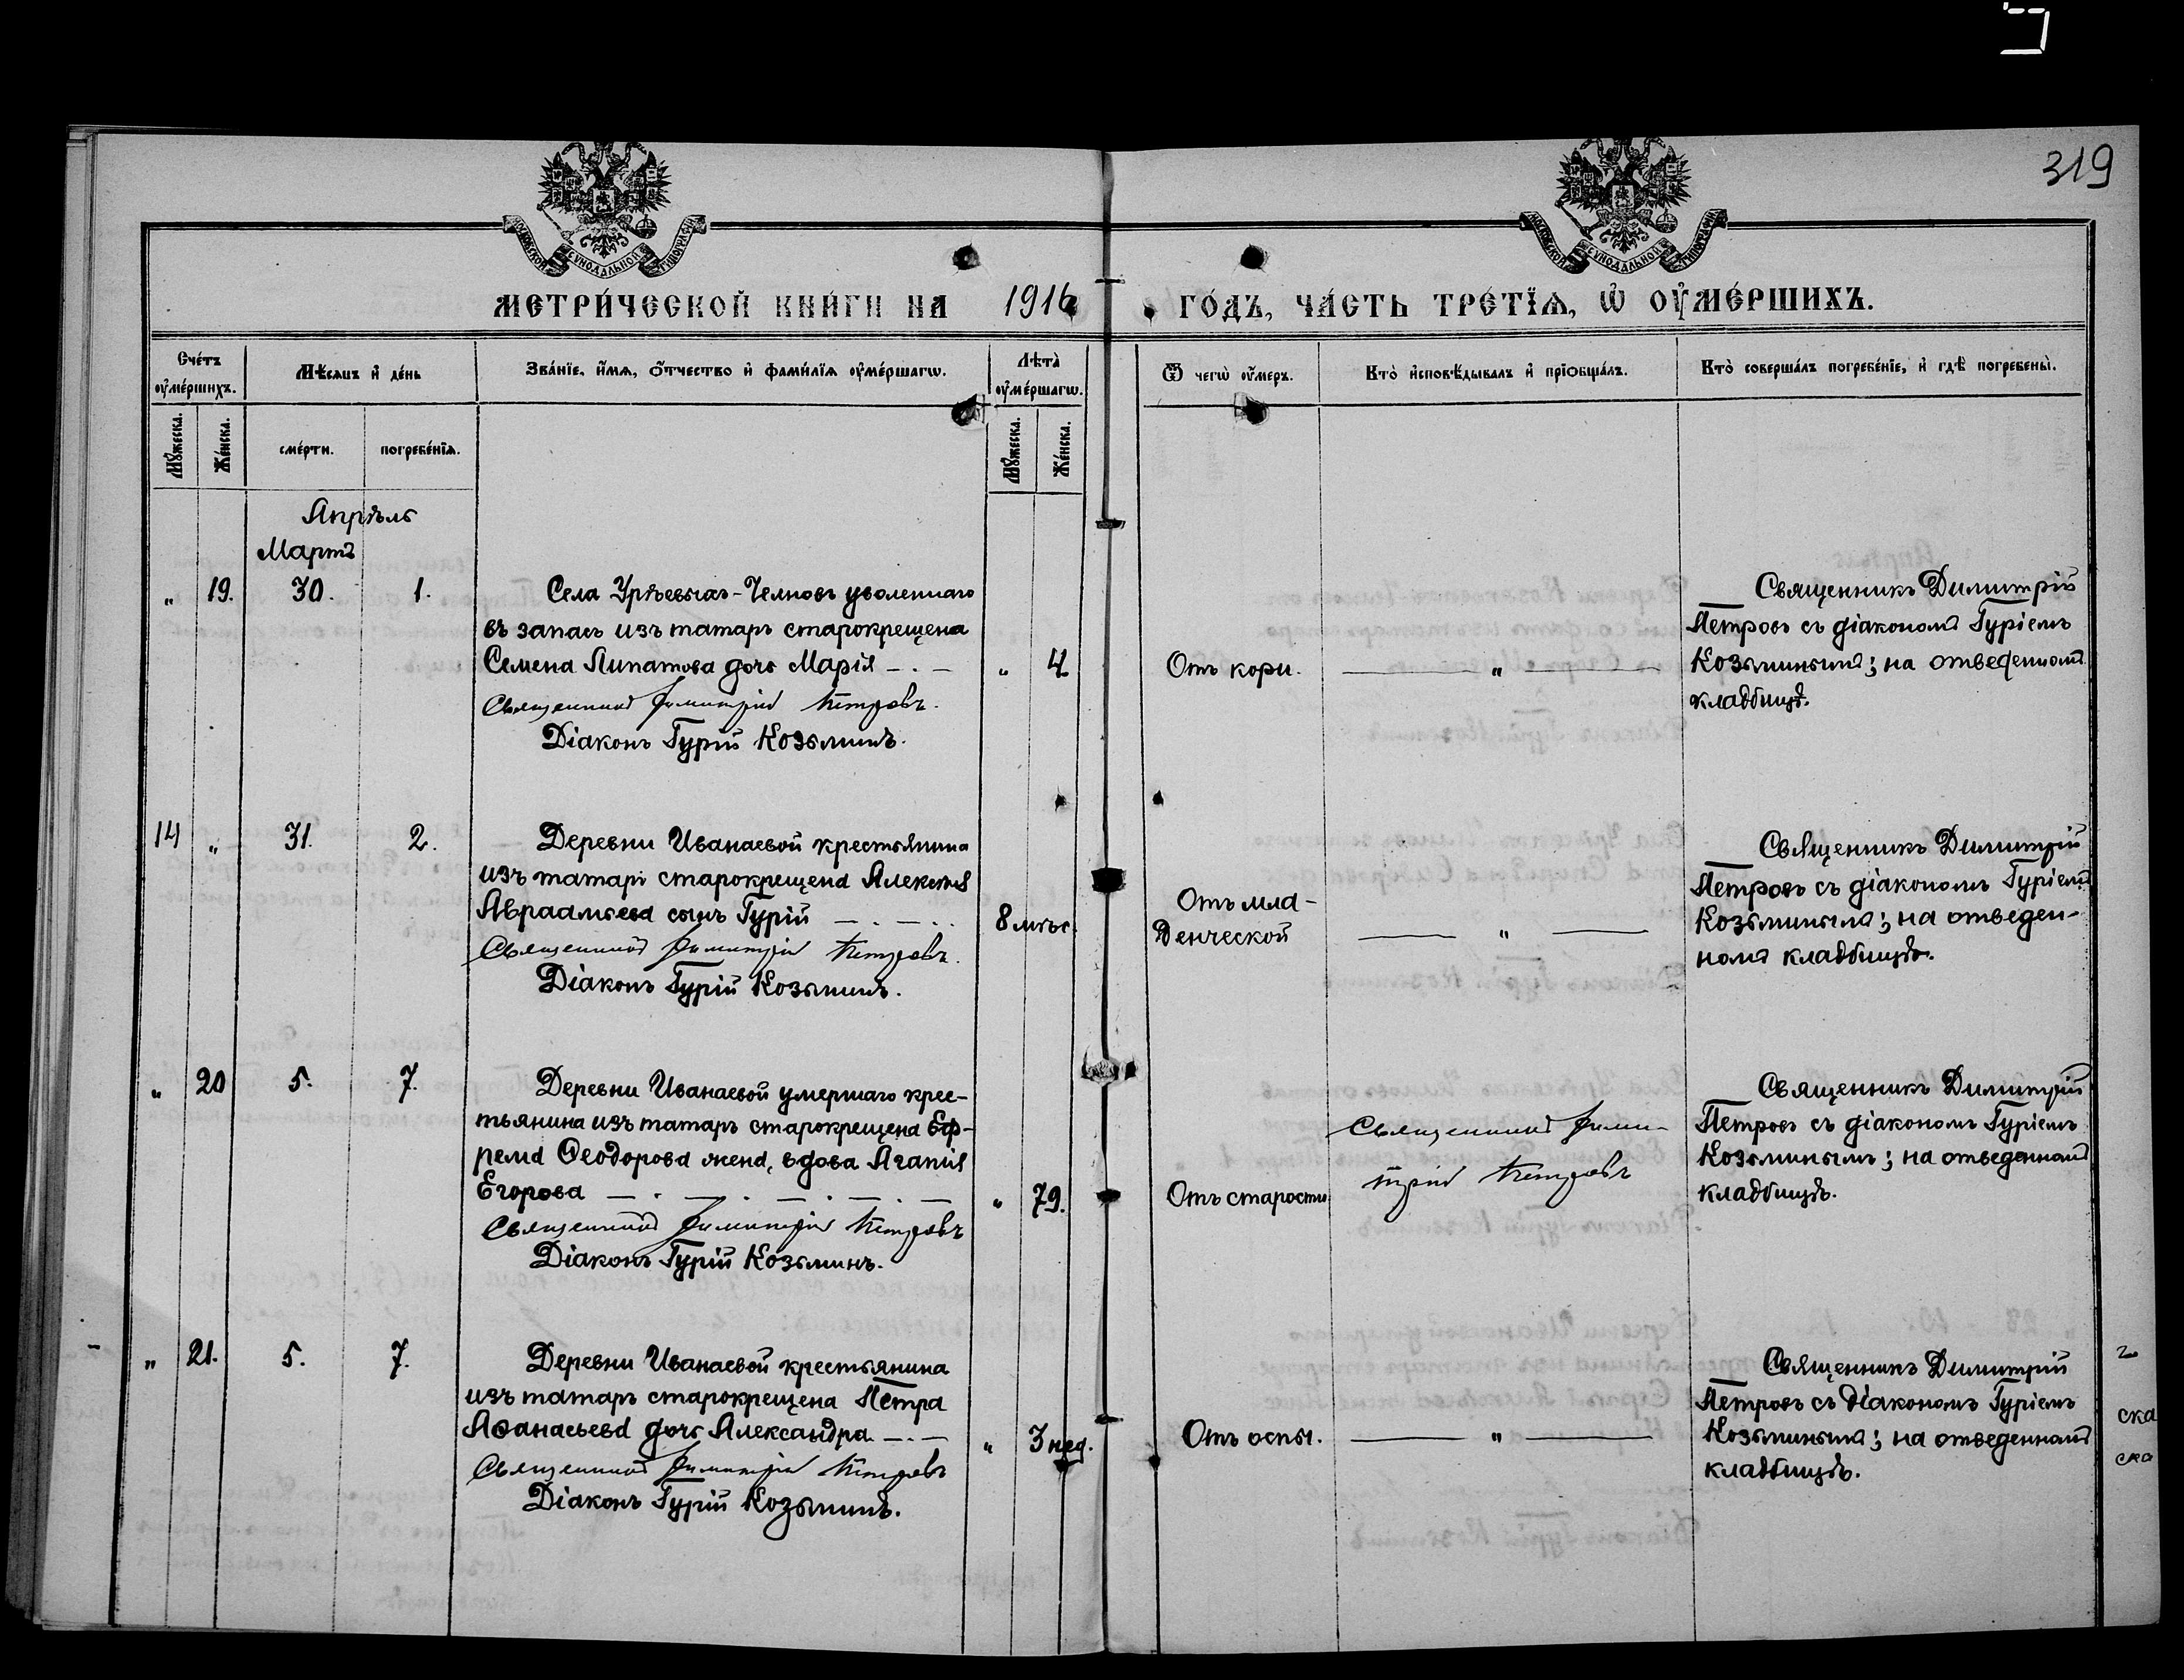 319
МОСКОВСКОЙ СУНОДАЛЬНОЙ ТИПОГРАФІИ
МОСКОВСКОЙ СУНОДАЛЬНОЙ ТИПОГРАФІИ
МЕТРИ́ЧЕСКОЙ КНИ́ГИ НА 1916 ГО́ДЪ, ЧА́СТЬ ТРЕ́ТЇѦ, Ѡ҆ ОУ҆МЕ́РШИХЪ.
Сче́тъ оу҆ме́ршихъ.
Мѣ́сѧцъ и҆ де́нь
Зва́нїе, и҆́мѧ, ѻ҆́тчество и҆ фами́лїѧ оу҆ме́ршагѡ.
Лѣта̀ оу҆ме́ршагѡ.
Ѿ чегѡ̀ оу҆́меръ.
Кто̀ и҆сповѣ́дывалъ и҆ прїѻбща́лъ.
Кто̀ соверша́лъ погребе́нїе, и҆ гдѣ̀ погребены̀.
Мꙋ́жеска.
Же́нска.
сме́рти.
погребе́нїѧ.
Мꙋ́жеска.
Же́нска.
Апрѣль
Мартъ
„ 19. 30. 1.
Села Урѣевыхъ-Челновъ уволеннаго
въ запасъ изъ татаръ старокрещена
Семена Липатова дочь Марія — . —
Священникъ Димитрій Петровъ.
Діаконъ Гурій Козьминъ.
„ 4
Отъ кори.
— „ —
Священникъ Димитрій
Петровъ съ діакономъ Гуріемъ
Козьминымъ; на отведенномъ
кладбищѣ.
14 „ 31. 2.
Деревни Иванаевой крестьянина
изъ татаръ старокрещена Алексѣя
Авраамьева сынъ Гурій — . — . .
Священникъ Димитрій Петровъ.
Діаконъ Гурій Козьминъ.
8 мѣс.
Отъ мла-
денческой
— „ —
Священникъ Димитрій
Петровъ съ діакономъ Гуріемъ
Козьминымъ; на отведен-
номъ кладбищѣ.
„ 20 5. 7.
Деревни Иванаевой умершаго крес-
тьянина изъ татаръ старокрещена Еф-
рема Ѳеодорова жена, вдова Агапія
Егорова — . — . — . — . —
Священникъ Димитрій Петровъ
Діаконъ Гурій Козьминъ.
„ 79.
Отъ старости
Священникъ Дими-
трій Петровъ
Священникъ Димитрій
Петровъ съ діакономъ Гуріемъ
Козьминымъ; на отведенномъ
кладбищѣ.
„ 21. 5. 7.
Деревни Иванаевой крестьянина
изъ татаръ старокрещена Петра
Аѳанасьева дочь Александра — . —
Священникъ Димитрій Петровъ
Діаконъ Гурій Козьминъ.
„ 3 нед.
Отъ оспы.
— „ —
Священникъ Димитрій
Петровъ съ діакономъ Гуріемъ
Козьминымъ; на отведенномъ
кладбищѣ.
ска
ска